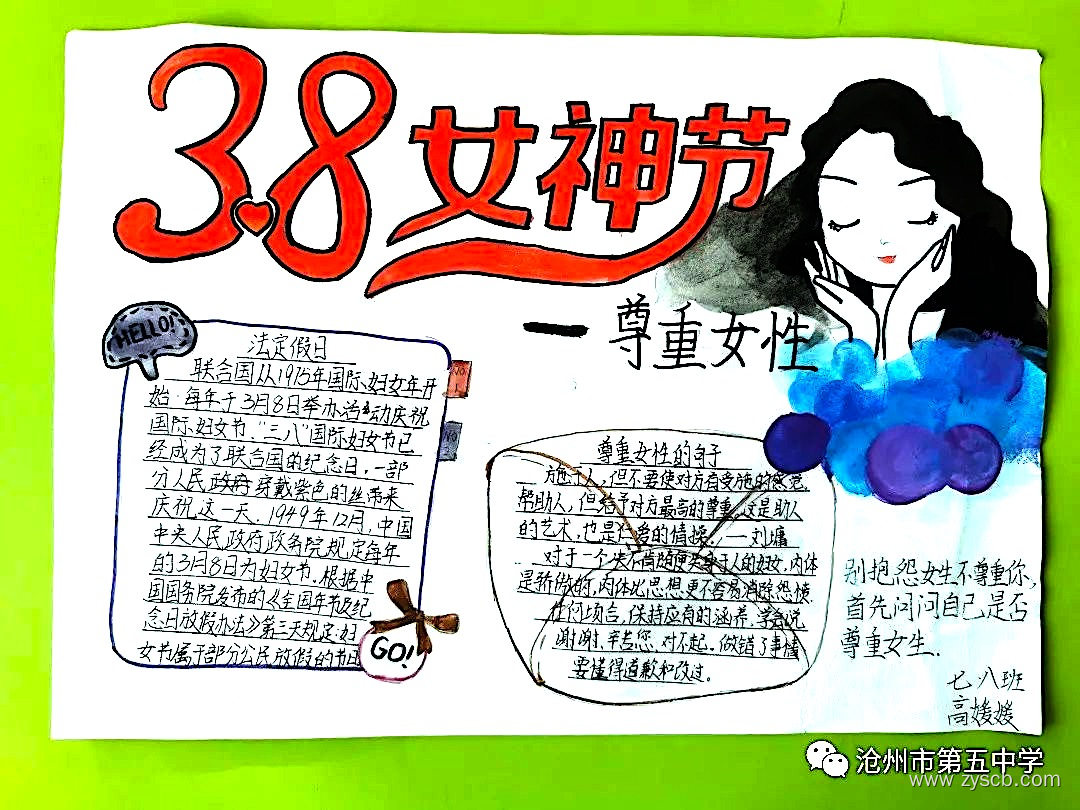 3.8女神节
一尊重女性
HELLO!
法定假日
联合国从1975年国际妇女年开
始.每年于3月8日举办活动庆祝
国际妇女节."三八"国际妇女节已
经成为了联合国的纪念日.一部
分人民政府穿戴紫色的丝带来
庆祝这一天.1949年12月,中国
中央人民政府政务院规定每年
的3月8日为妇女节.根据中
国国务院发布的《全国年节及纪
念日放假办法》第三天规定:妇
女节属于部分公民放假的节日
GO!
尊重女性的句子
施于人,但不要使对方有受施的感觉.
帮助人,但给予对方最高的尊重.这是助人
的艺术,也是仁爱的情操.—刘墉
对于一个失于人的妇女,肉体
是骄傲的,肉体比思想更不容易消除怨恨
任何场合,保持应有的涵养,学会说
谢谢、辛苦您、对不起。做错了事情
要懂得道歉和改过。
别抱怨女生不尊重你,
首先问问自己是否
尊重女生.
七八班
高媛媛
沧州市第五中学
www.zyscb.com